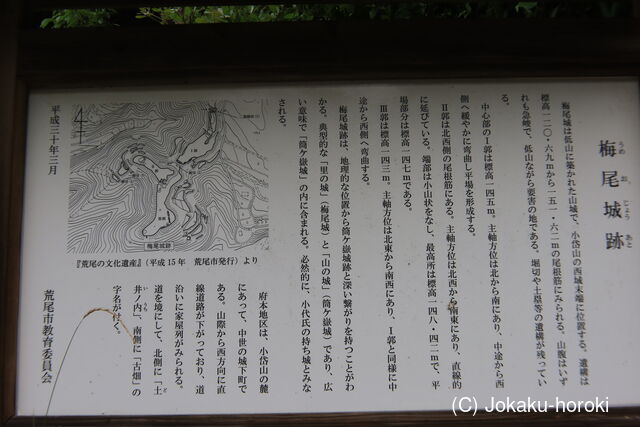 梅尾城跡
うめ お じょう あと
梅尾城は低山に築かれた山城で、小岱山の西城末端に位置する。遺構は
標高一二〇・六九mから一五一・六二mの尾根筋にみられる。山腹はいず
れも急峻で、低山ながら要害の地である。堀切や土塁等の遺構が残ってい
る。
中心部のⅠ郭は標高一四五m。主軸方位は北から南にあり、中途から西
側へ緩やかに弯曲し平場を形成する。
Ⅱ郭は北西側の尾根筋にある。主軸方位は北西から南東にあり、直線的
に延びている。端部は小山状をなし、最高所は標高一四八・四二mで、平
場部分は標高一四七mである。
Ⅲ郭は標高一四三m。主軸方位は北東から南西にあり、Ⅰ郭と同様に中
途から西側へ弯曲する。
梅尾城跡は、地理的な位置から筒ケ嶽城跡と深い繋がりを持つことがわ
かる。典型的な「里の城」(梅尾城)と「山の城」(筒ケ嶽城)であり、広
い意味で「筒ケ嶽城」の内に含まれる。必然的に、小代氏の持ち城とみな
される。
梅尾城跡
『荒尾の文化遺産』(平成15年 荒尾市発行)より
府本地区は、小岱山の麓
にあって、中世の城下町で
ある。山際から西方向に直
線道路が下がっており、道
沿いに家屋列がみられる。
道を境にして、北側に「土
井ノ内」、南側に「古畑」の
字名が付く。
平成三十年三月
荒尾市教育委員会
(C) Jokaku-horoki